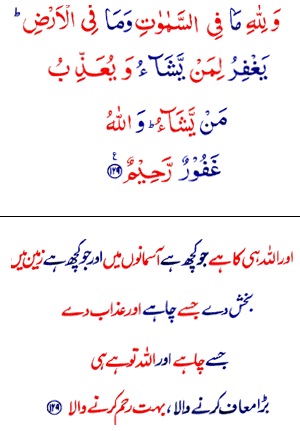 وَلِلّٰهِ مَا فِی السَّمٰوٰتِ وَمَا فِی الْاَرْضِ ؕ
یَغْفِرُ لِمَنْ یَّشَآءُ وَ یُعَذِّبُ
مَنْ یَّشَآءُ ؕ وَ اللّٰهُ
غَفُوْرٌ رَّحِیْمٌ ﴿۱۲۹﴾ ع
اور اللہ ہی کا ہے جو کچھ ہے آسمانوں میں اور جو کچھ ہے زمین میں
بخش دے جسے چاہے اور عذاب دے
جسے چاہے اور اللہ تو ہے ہی
بڑا معاف کرنے والا، بہت رحم کرنے والا ﴿۱۲۹﴾